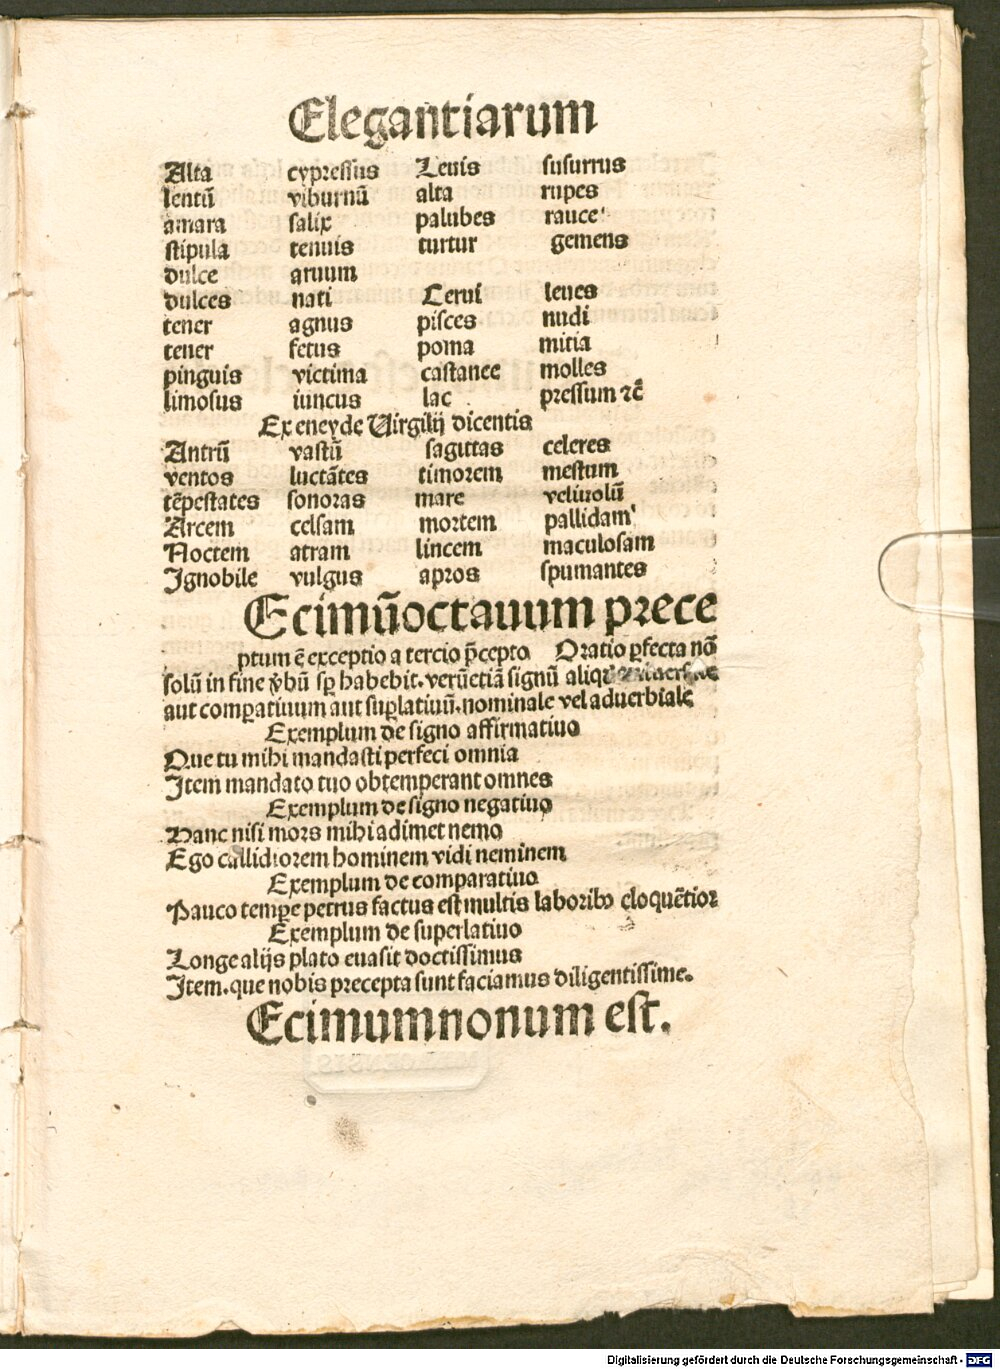 Elegantiarum
Alta cypressus Leuis susurrus
lentū viburnū alta rupes
amara salix palubes rauce
stipula tenuis turtur gemens
dulce aruum
dulces nati Cerui leues
tener agnus pisces nudi
tener fetus poma mitia
pinguis victima castanee molles
limosus iuncus lac pressum ⁊c̄
Ex eneyde Uirgilij dicentis
Antrū vastū sagittas celeres
ventos luctātes timorem mestum
tēpestates sonoras mare veliuolū
Arcem celsam mortem pallidam
Noctem atram lincem maculosam
Ignobile vulgus apros spumantes
Ecimūoctauum prece
ptum ē exceptio a tercio p̄cepto Oratio ꝑfecta nō
solū in fine v̄bū sꝑ habebit. verūetiā signū aliqd
aut comꝑatiuum aut suꝑlatiuū. nominale vel aduerbiale
Exemplum de signo affirmatiuo
Que tu mihi mandasti perfeci omnia
Item mandato tuo obtemperant omnes
Exemplum de signo negatiuo
Hanc nisi mors mihi adimet nemo
Ego callidiorem hominem vidi neminem
Exemplum de comparatiuo
Pauco temꝑe petrus factus est multis laboribꝰ eloquētior
Exemplum de superlatiuo
Longe alijs plato euasit doctissimus
Item. que nobis precepta sunt faciamus diligentissime.
Ecimumnonum est.
Digitalisierung gefördert durch die Deutsche Forschungsgemeinschaft - DFG